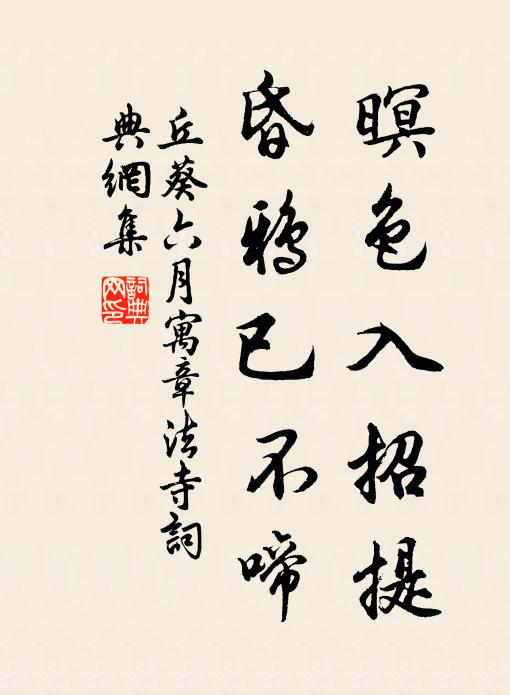 暝色入招提
昏鴉已不啼
丘葵六月寓章法寺詞
典網集
詞典網印